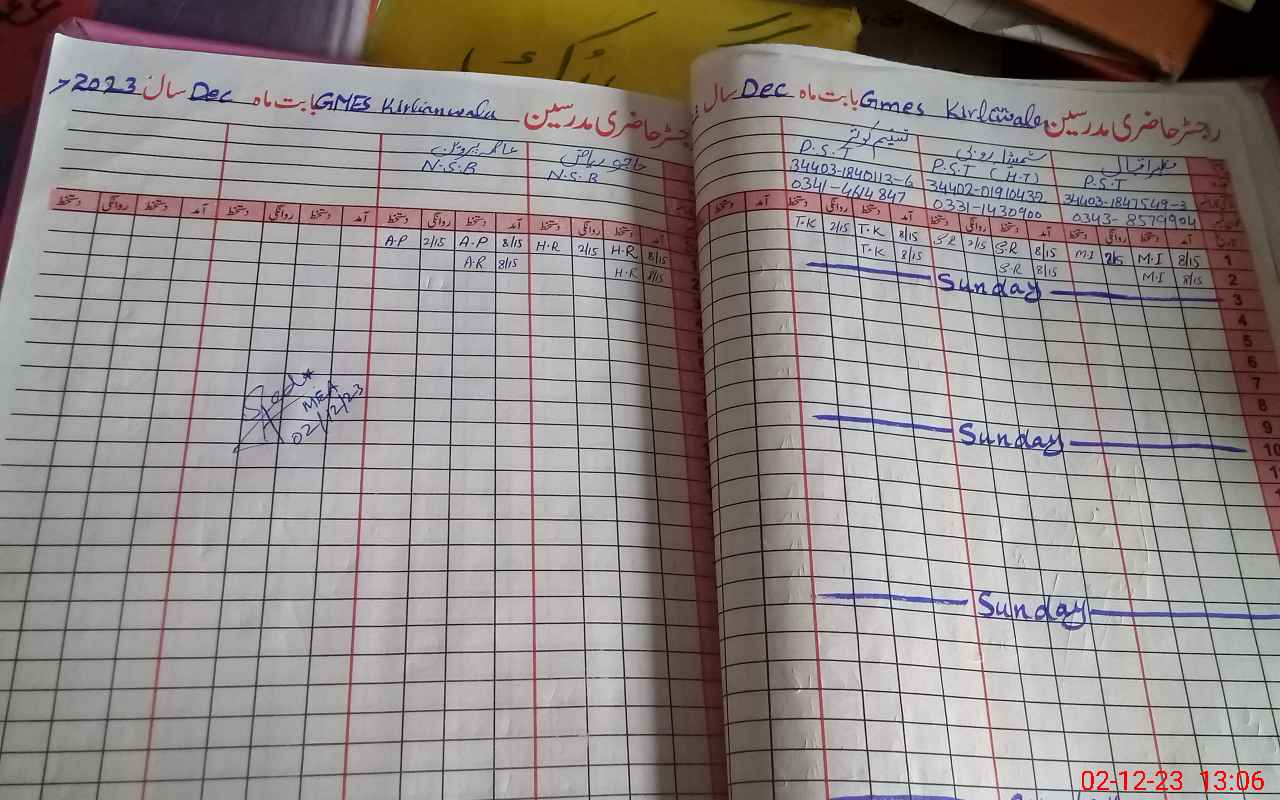 رجسٹر حاضری مدرسین Gmes Kirlanwala بابت ماہ Dec سال
مظہر اقبال
P.S.T
34403-1847549-3
0343-8579904
P.S.T (H.T)
34402-0191043
0331-1430900
تسنیم کوثر
P.S.T
34403-1840113-6
0341-4614847
آمد دستخط روانگی دستخط آمد دستخط روانگی دستخط آمد دستخط روانگی دستخط
1 8/15 M.I 2/15 M.I 8/15 S.R 2/15 S.R 8/15 T.K 2/15 T.K
2 8/15 M.I 8/15 S.R 8/15 T.K
3 Sunday
4
5
6
7
8
9
10 Sunday
Sunday
رجسٹر حاضری مدرسین GMES Kirlianwala بابت ماہ Dec سال 2023
N.S.B
N.S.B
آمد دستخط روانگی دستخط آمد دستخط روانگی دستخط آمد دستخط روانگی دستخط آمد دستخط روانگی دستخط
8/15 H.R 2/15 H.R 8/15 A.P 2/15 A.P
8/15 H.R 8/15 A.R
MEA
02/12/23
02-12-23 13:06